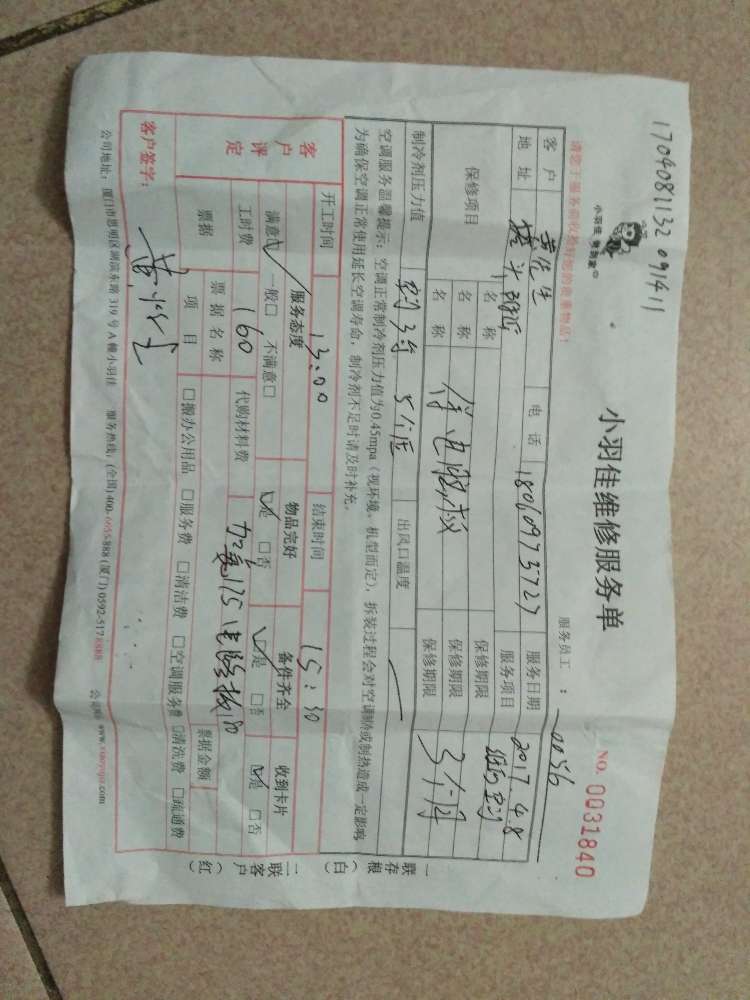 1704081132 091411
小羽佳 帮到家
小羽佳维修服务单
NO. 0031840
请您于服务前收捡好您的贵重物品!
服务员工 : 0056
客户 电话 18060975727 服务日期 2017.4.8
地址 附近 服务项目
保修项目 名称 保修期限
名称 修电脑板 保修期限 3个月
制冷剂压力值 出风口温度
空调服务温馨提示: 空调正常制冷剂压力值为0.45mpa (视环境、机型而定), 拆装过程会对空调制冷或制热造成一定影响
为确保空调正常使用延长空调寿命, 制冷剂不足时请及时补充。
开工时间 13:00 结束时间 15:30
客户评定 服务态度 物品完好 备件齐全 收到卡片
满意☑ 一般□ 不满意□ ☑是 □否 ☑是 □否 ☑是 □否
工时费 160 代购材料费
票据 票据名称 票据金额
项目 □搬办公用品 □服务费 □清洁费 □空调服务费 □清洗费 □疏通费
客户签字:
公司地址: 厦门市思明区湖滨东路 319 号 A 幢小羽佳 服务热线: (全国) 400-6655-888 (厦门) 0592-5178888 公司网: www.xiaoyujia.com
一联存根(白)
二联客户(红)